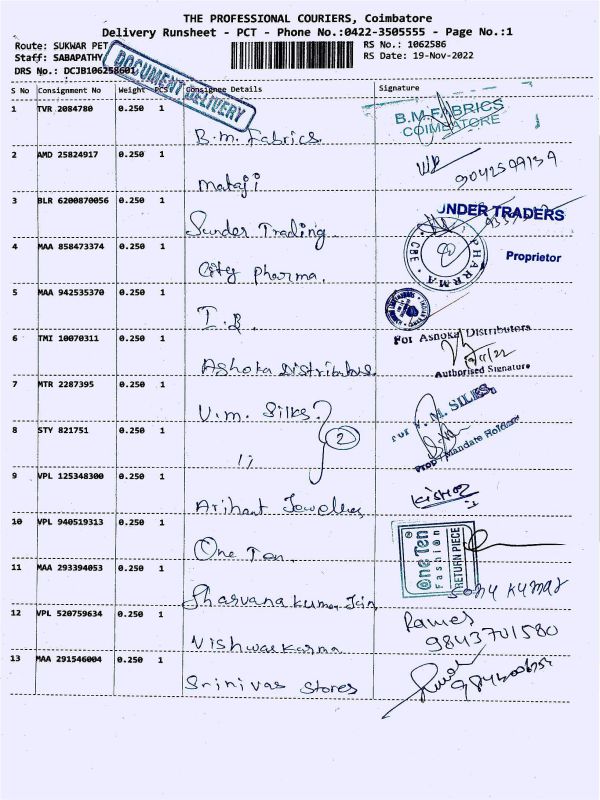 THE PROFESSIONAL COURIERS, Coimbatore
Delivery Runsheet - PCT - Phone No.:0422-3505555 - Page No.:1
Route: SUKWAR PET RS No.: 1062586
Staff: SABAPATHY RS Date: 19-Nov-2022
DRS No.: DCJB106258601
DOCUMENT DELIVERY
S No Consignment No Weight PCS Consignee Details Signature
1 TVR 2084780 0.250 1 B.M. Fabrics B.M.FABRICS
COIMBATORE
2 AMD 25824917 0.250 1 Mataji
3 BLR 6200870056 0.250 1 Sunder Trading SUNDER TRADERS
Proprietor
4 MAA 858473374 0.250 1 City Pharma. PHARMA CBE
5 MAA 942535370 0.250 1 I.B.
6 TMI 10070311 0.250 1 Ashoka Distributors For Ashoka Distributors
Authorised Signature
7 MTR 2287395 0.250 1 V.M. Silks For V.M. SILKS
8 STY 821751 0.250 1 2 Prop / Mandate Holder
9 VPL 125348300 0.250 1 Arihant Jewellers Kishor
10 VPL 940519313 0.250 1 One Ten One Ten
Fashion
RETURN PIECE
11 MAA 293394053 0.250 1 Sharvana kumar Jain Sony Kumar
12 VPL 520759634 0.250 1 Vishwakarma Rames
9843701580
13 MAA 291546004 0.250 1 Srinivas Stores